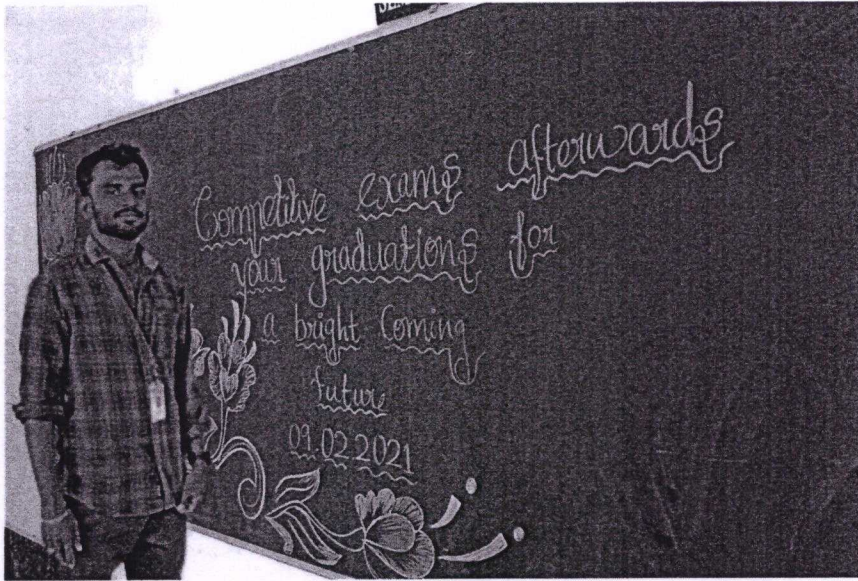 Competitive exams afterwards
your graduations for
a bright Coming
future
09.02.2021